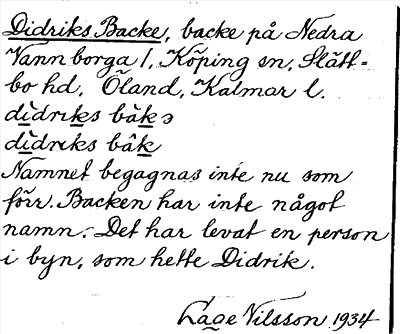 Didriks Backe, backe på Nedra
Vannborga 1, Köping sn, Slätt-
bo hd, Öland, Kalmar l.
dìdrıks bàkə
dìdrıks bâk
Namnet begagnas inte nu som
förr. Backen har inte något
namn. Det har levat en person
i byn, som hette Didrik.
Låge Nilsson 1934